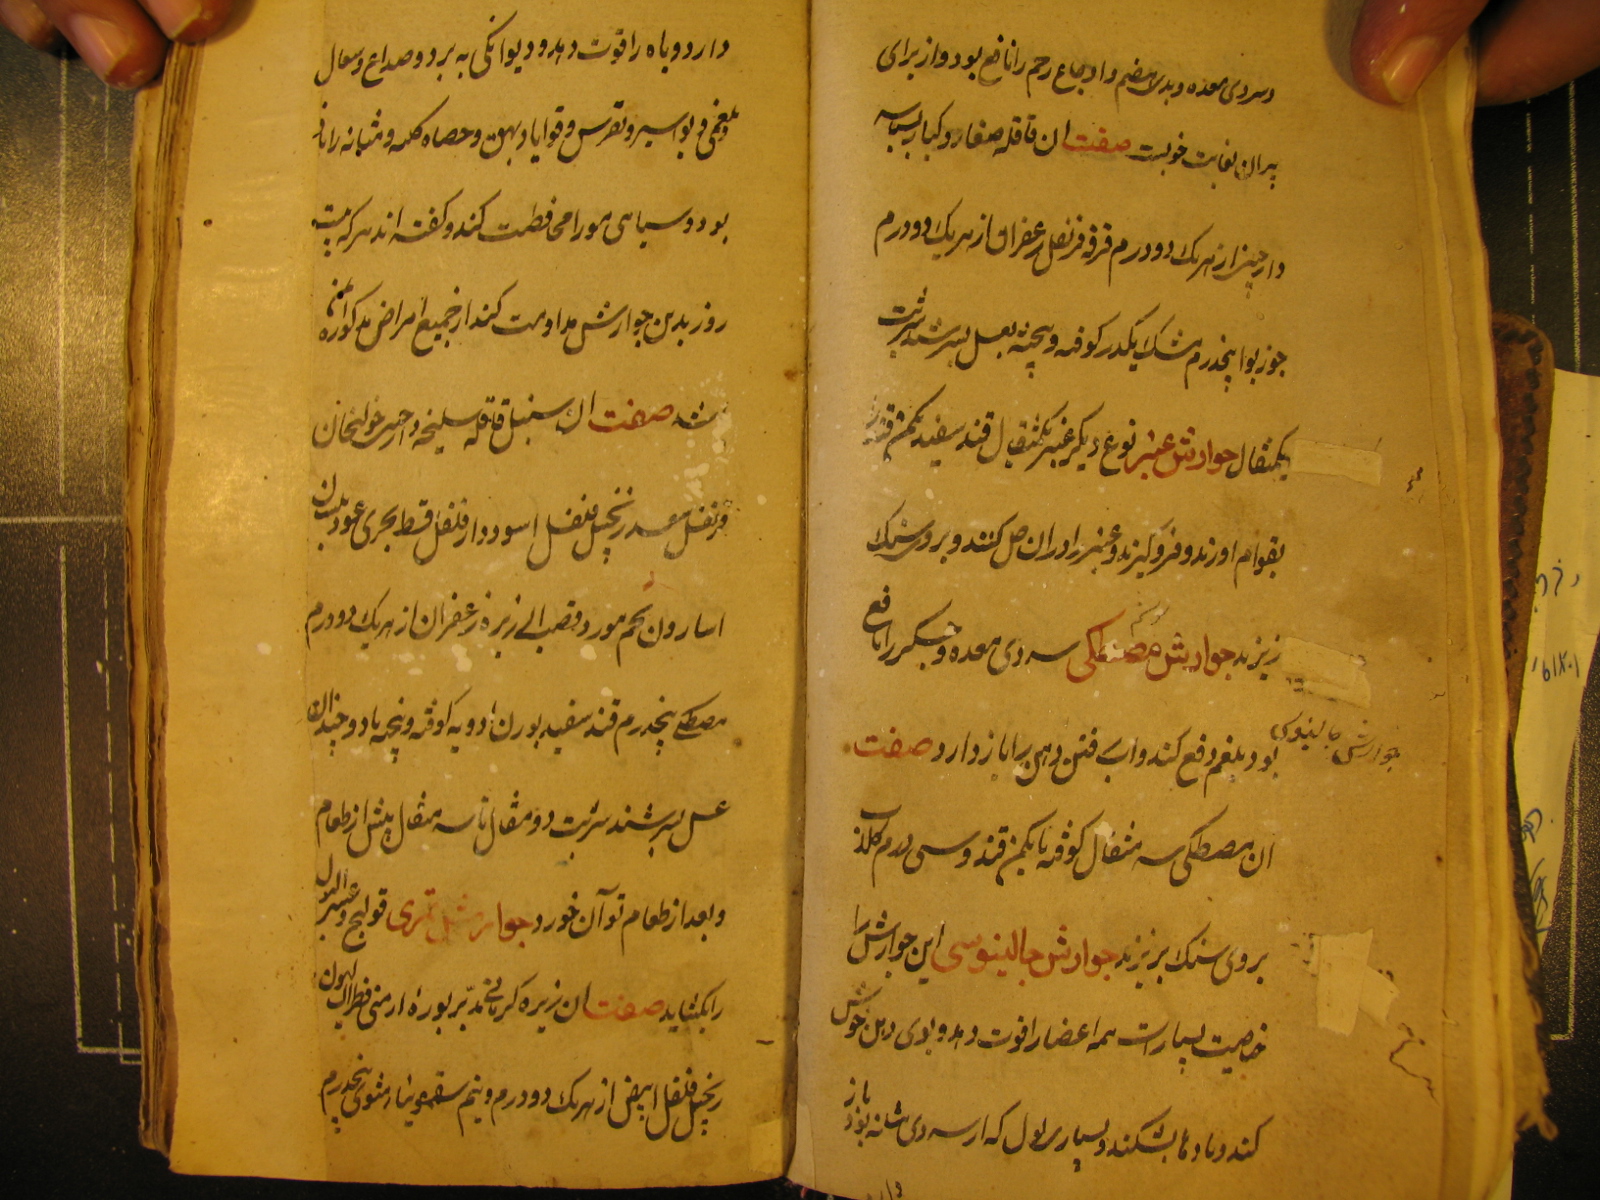 وسردی معده و بدی هضم و اوجاع رحم را نافع بود و از برای
پیران بغایت خوبست صفت ان قاقله صغار و کبار بسباسه
دارچینی از هریک دو درم قرفه قرنفل زعفران از هریک دو درم
جوزبوا پنجدرم مشک یکدرم کوفته و بیخته بعسل بسرشند شربت
یکمثقال جوارش عنبر نوع دیگر عنبر یکمثقال قند سفید یکمن قند را
بقوام اورند و فروگیرند و عنبر را دران حل کنند و بروی سنک
ریزند جوارش مصطکی سردی معده و جگر را نافع
بود بلغم دفع کند و اب رفتن دهن را بازدارد صفت
جوارش جالینوس
ان مصطکی سه مثقال کوفته با یکمن قند و سی درم کلاب
بروی سنک بریزند جوارش جالینوسی این جوارش را
خاصیت بسیارست همه اعضا را قوت دهد و بوی دهن خوش
کند و بادها بشکند و بسیاری بول که از سردی مثانه بود باز
دارد و باه را قوت دهد و دیوانکی به برد و صداع و سعال
بلغمی و بواسیر و نقرس و قوابا و بهق و حصاه کلیه و مثانه را نا
بود و سیاهی مو را محافظت کند و کفته اند هرکه بیست
روز بدین جوارش مداومت کند از جمیع امراض مذکوره ایمن
باشد صفت ان سنبل قاقله سلیخه دارچینی خولنجان
قرنفل سعد زنجبیل فلفل اسود دارفلفل قسط بحری عود بلسان
اسارون تخم مورد قصب الذریره زعفران از هریک دو درم
مصطکی پنجدرم قند سفید بوزن ادویه کوفته و بیخته با دو چندان
عسل بسرشند شربت دو مثقال تا سه مثقال پیش از طعام
و بعد از طعام توان خورد جوارش تمری قولنج و عسر البول
را بکشاید صفت ان زیره کرمانی مدبر بوره ارمنی فطراسالیون
زنجبیل فلفل ابیض از هریک دو درم و نیم سقمونیا مشوی پنجدرم